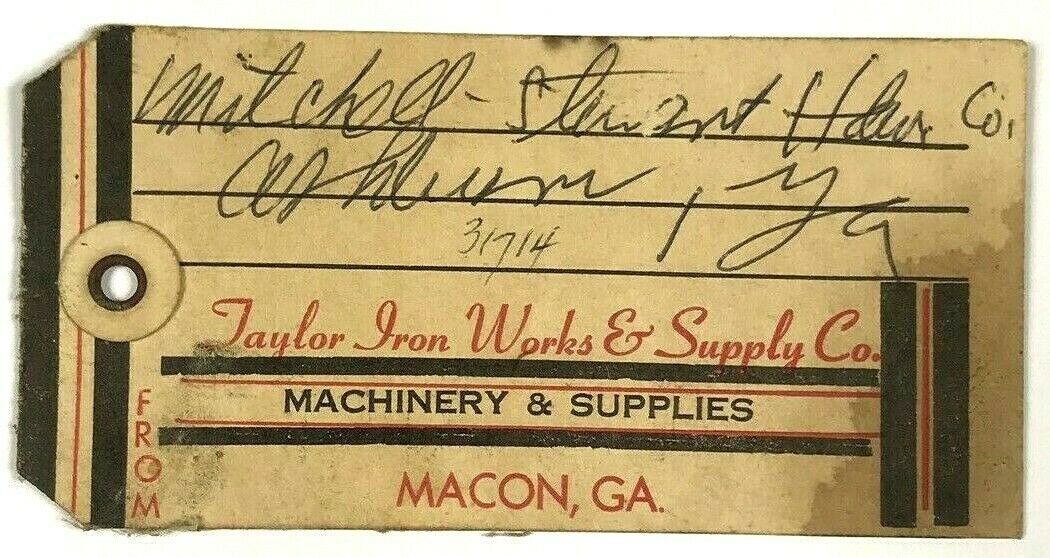 Mitchell - Stewart Hdw. Co.
Ashburn, Ga
31714
Taylor Iron Works & Supply Co.
MACHINERY & SUPPLIES
FROM
MACON, GA.